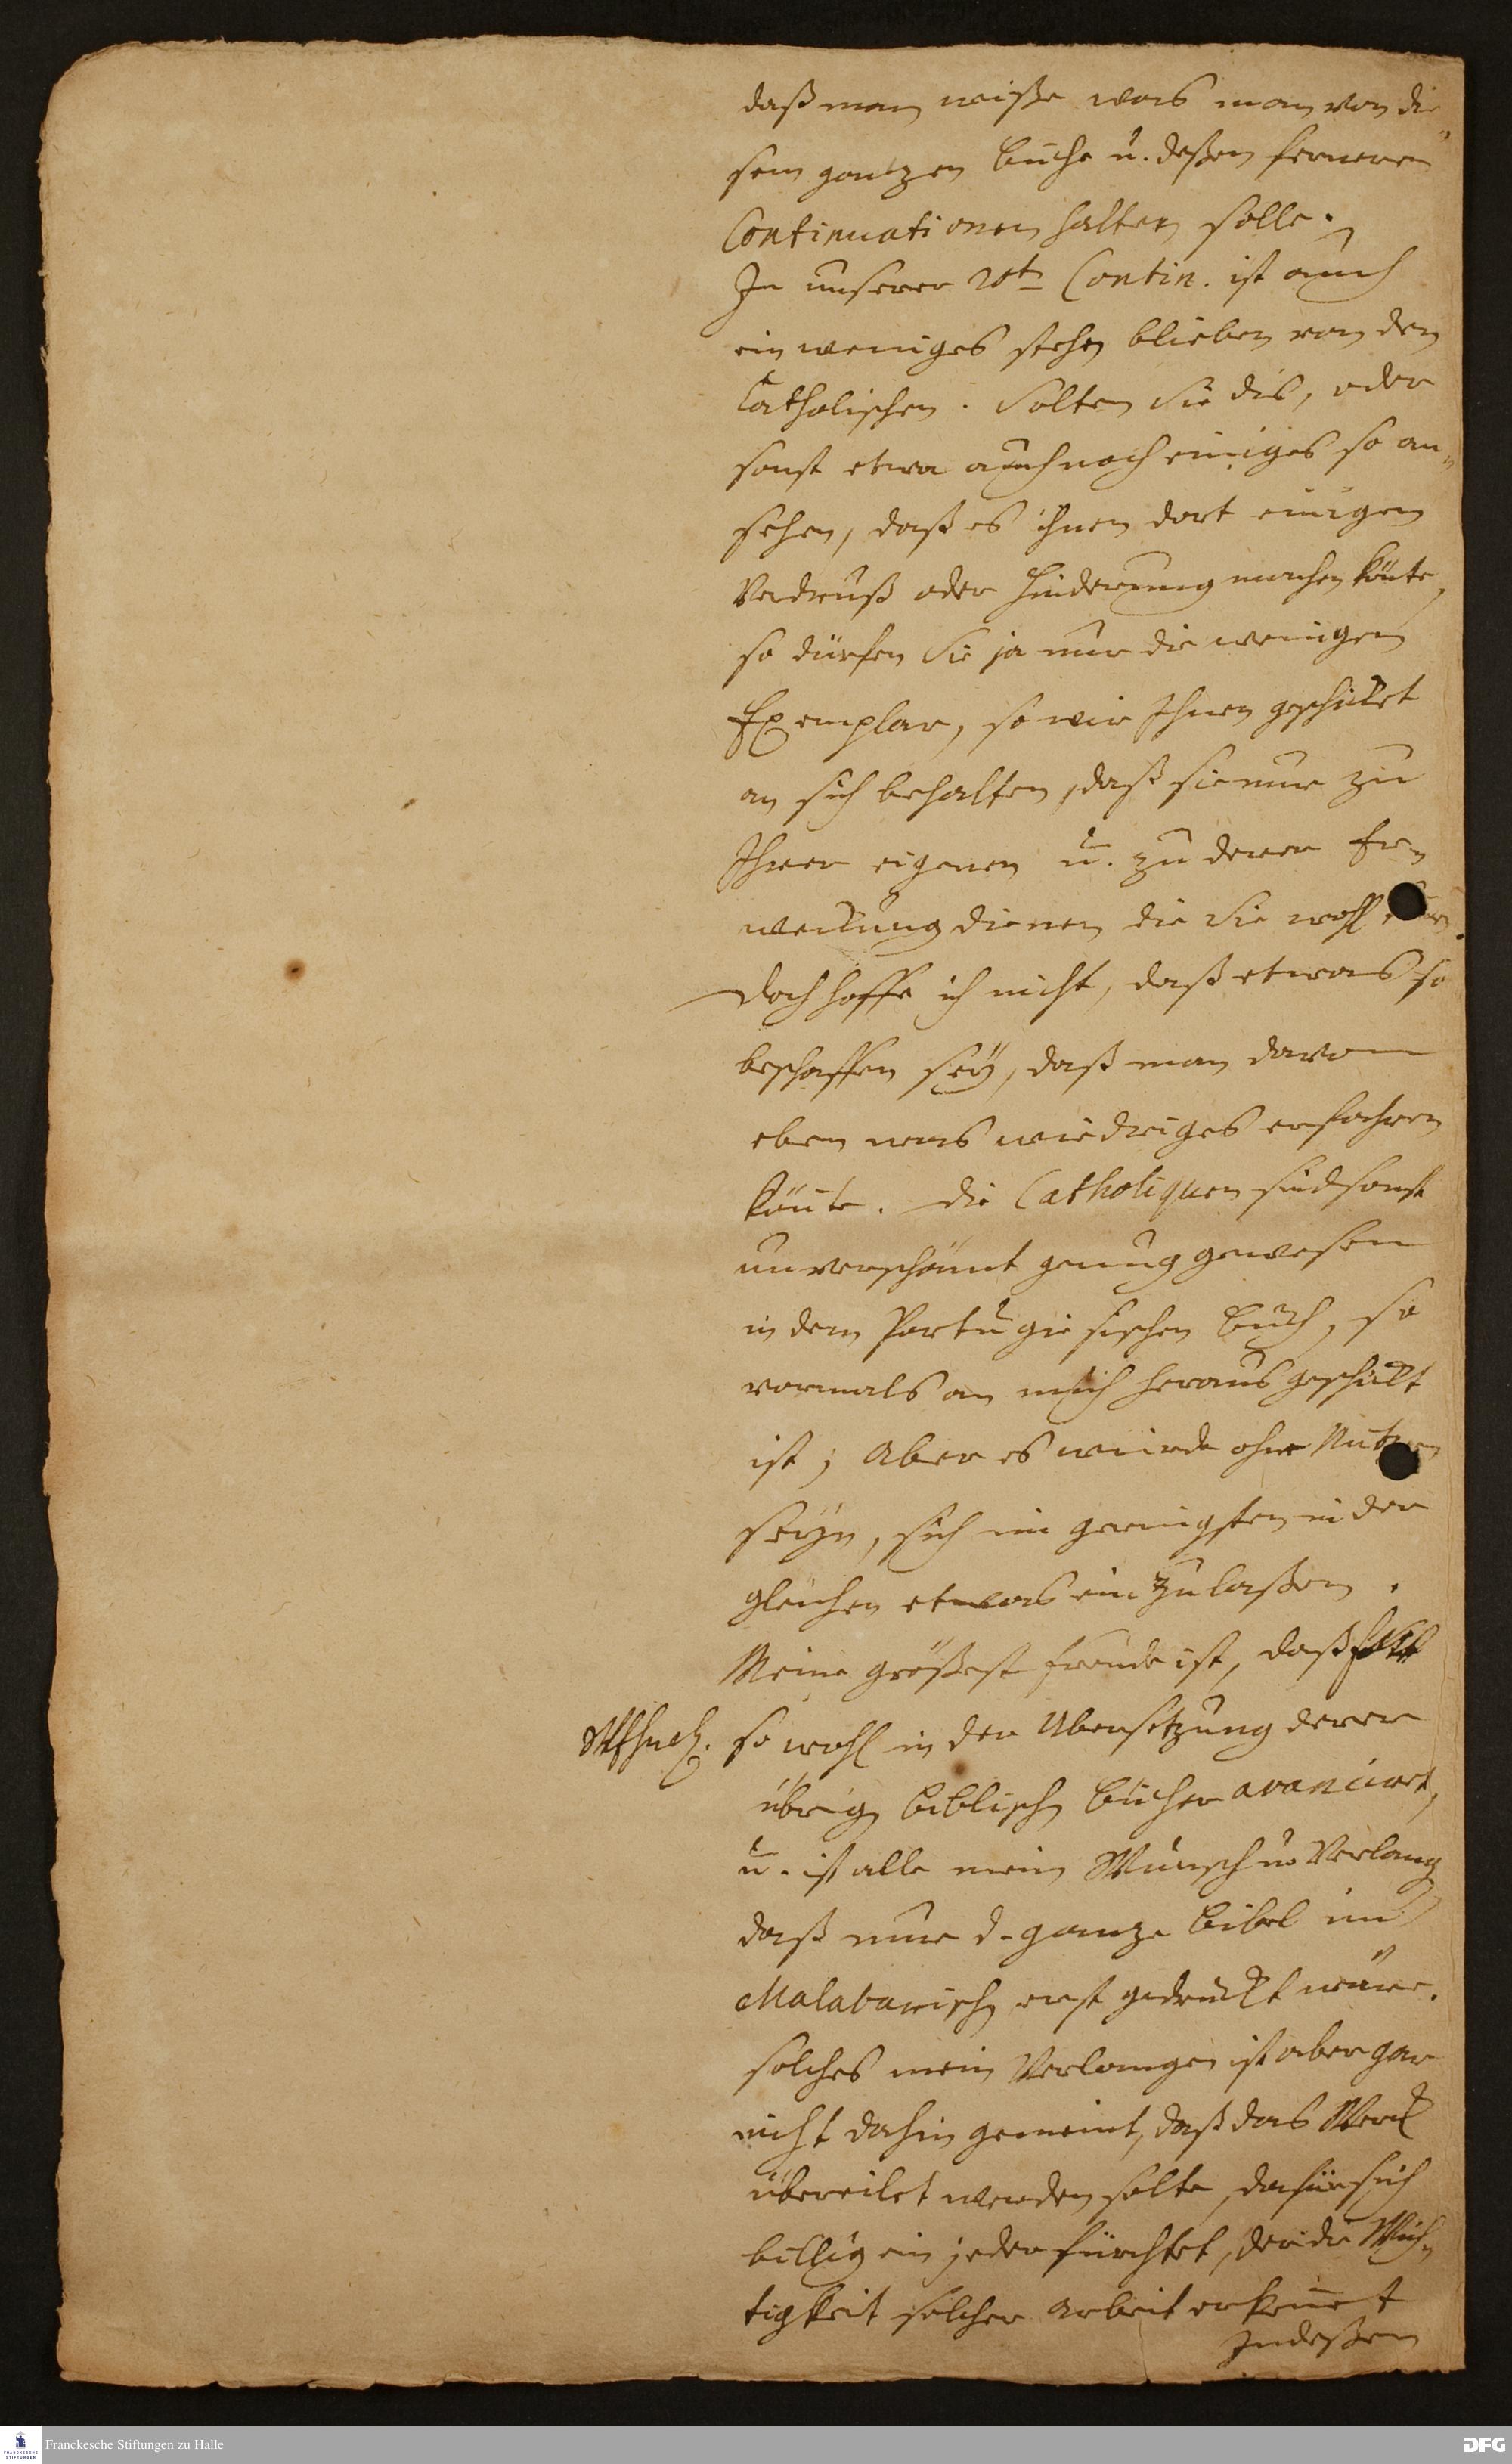 daß man wiße was man von die-
sem gantzen Buche u. deßen ferneren
Continuationen halten solle.
In unserer 20t. Contin. ist auch
ein weniges stehen blieben von den
Catholischen. Solten Sie dis, oder
sonst etwa auch noch einiges so an-
sehen, daß es ihnen dort einigen
Verdruß oder Hinderung machen könte,
so dürfen Sie ja nur die wenigen
Exemplar, so wir Ihnen geschicket
an sich behalten, daß sie nur zu
Ihrer eigenen u. zu derer Er-
weckung dienen die Sie wohl
Doch hoffe ich nicht, daß etwas so
beschaffen sey, daß man davon
eben was wiedriges erfahren
könte. Die Catholiquen sind sonst
unverschämt genug gewesen
in dem Portugiesischen Buch, so
vormals an mich heraus geschickt
ist; Aber es würde ohne Nutzen
seyn, sich im geringsten in der
gleichen etwas einzulaßen.
Meine größeste Freude ist, daß
so wohl in der Ubersetzung derer
übrign biblischn Bücher avanciret,
u. ist alle mein Wunsch u. Verlang
daß nur d. ganze Bibel im
Malabarischn erst gedruckt wäre.
solches mein Verlangen ist aber gar
nicht dahin gemeint, daß das Werck
übereilet werden solte, dafür sich
billig ein jeder fürchtet, der die Wich-
tigkeit solcher Arbeit erkennet
Indeßen
Franckesche Stiftungen zu Halle
FRANCKESCHE STIFTUNGEN
DFG